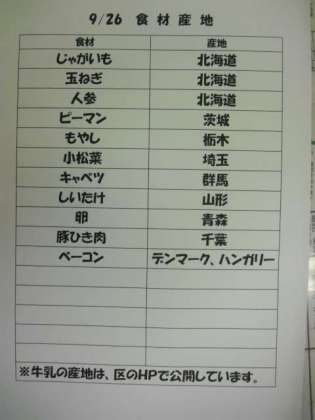 9/26 食材産地
食材 産地
じゃがいも 北海道
玉ねぎ 北海道
人参 北海道
ピーマン 茨城
もやし 栃木
小松菜 埼玉
キャベツ 群馬
しいたけ 山形
卵 青森
豚ひき肉 千葉
ベーコン デンマーク、ハンガリー
※牛乳の産地は、区のHPで公開しています。